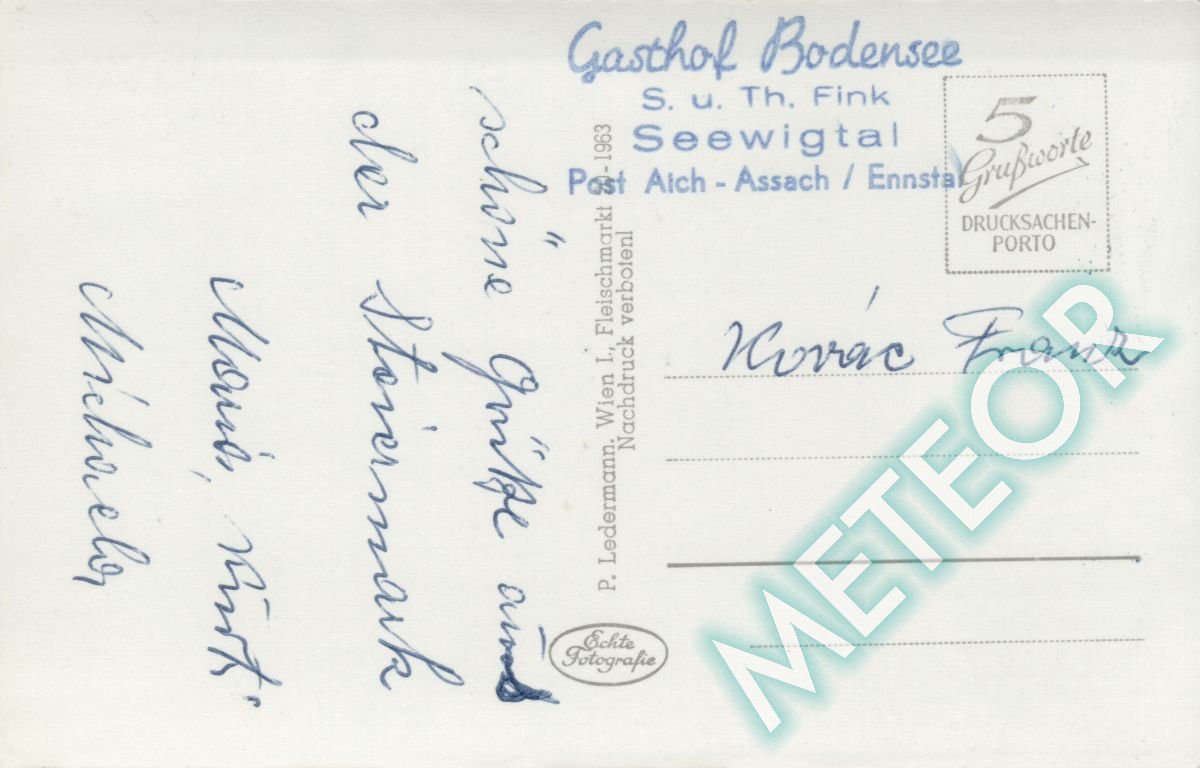 schöne Grüße aus
der Steiermark
Maria, Kurt.
Michaela
P. Ledermann, Wien I., Fleischmarkt 20-1963
Nachdruck verboten!
Echte
Fotografie
Gasthof Bodensee
S. u. Th. Fink
Seewigtal
Post Aich - Assach / Ennstal
5
Grußworte
DRUCKSACHEN-
PORTO
Kovác Frank
METEOR